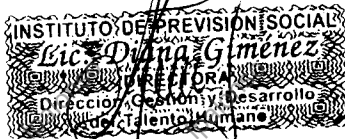 INSTITUTO DE PREVISIÓN SOCIAL
Lic. Diana Giménez
DIRECTORA
Dirección Gestión y Desarrollo
del Talento Humano